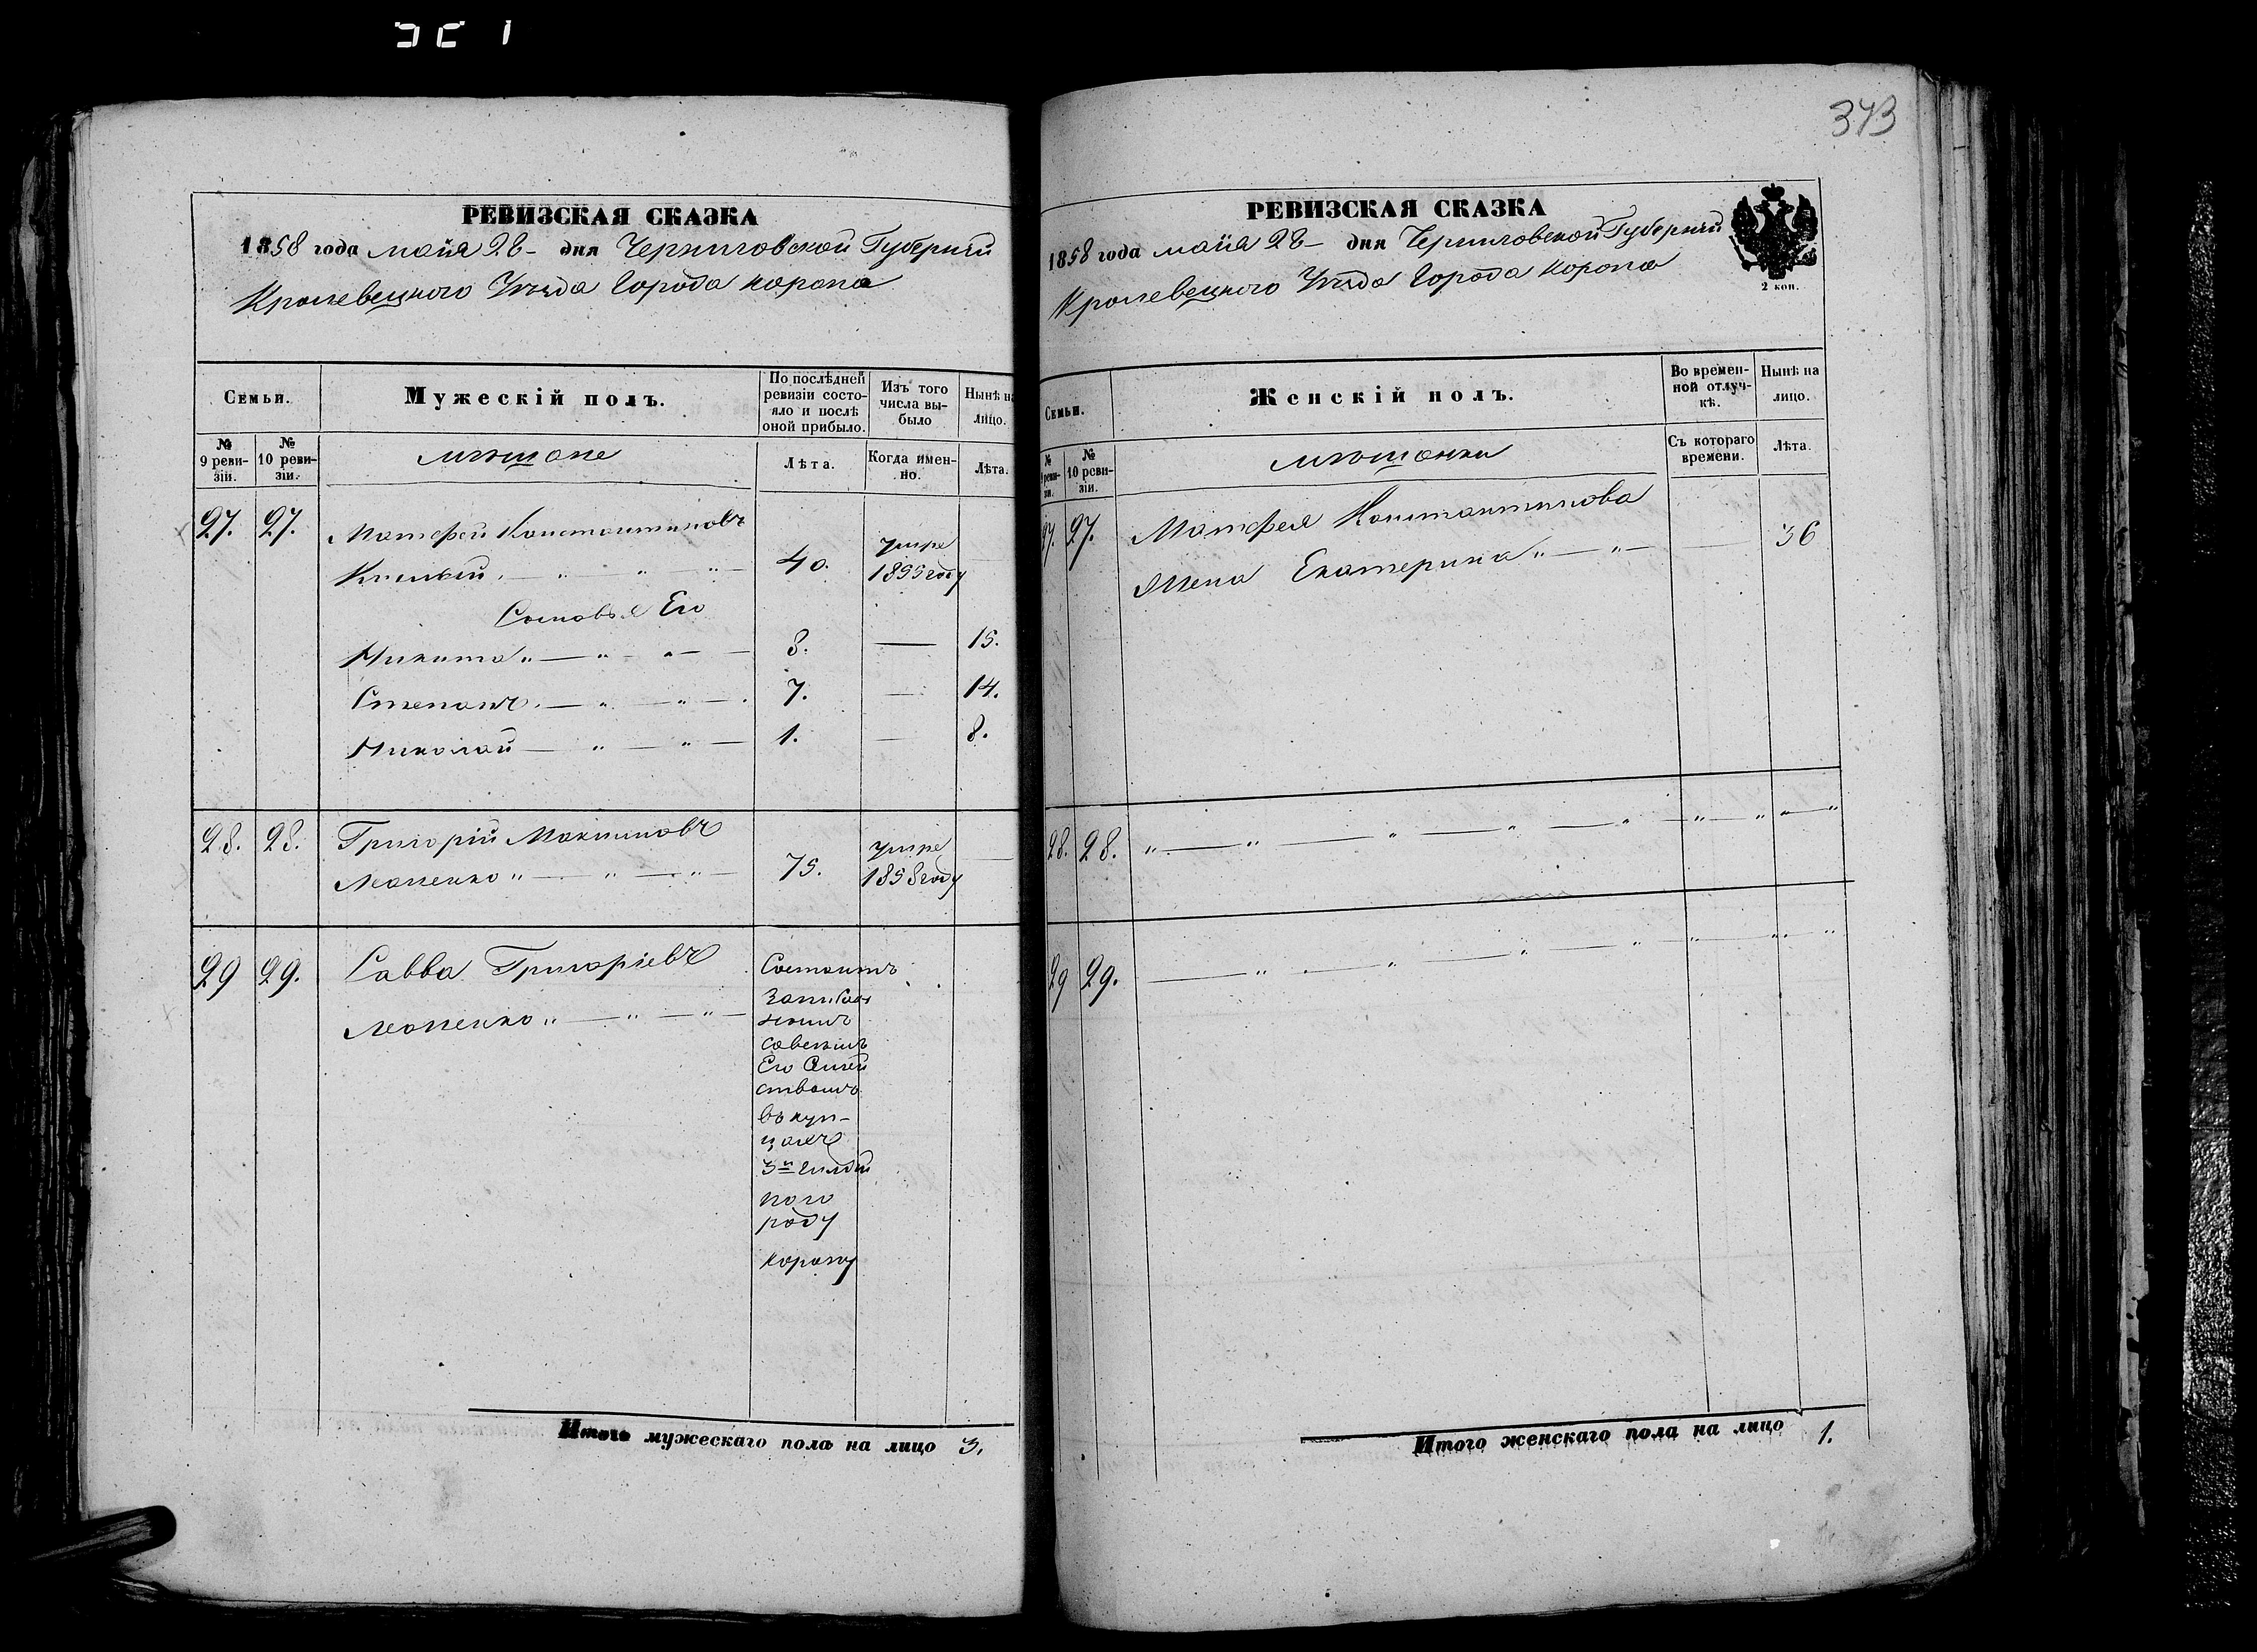 373
РЕВИЗСКАЯ СКАЗКА
1858 года майя 26 - дня Черниговской Губерніи
Кролевецкого Уѣзда Города Коропа
Семьи.
Мужескій полъ.
По послѣдней ревизіи состояло и послѣ оной прибыло.
Изъ того числа выбыло
Нынѣ на лицо.
№ 9 ревизіи.
№ 10 ревизіи.
мѣщане
Лѣта.
Когда именно.
Лѣта.
27. 27. Матфей Константиновъ
40. умре 1855 году
Сыновья Его
Никита 8. — 15.
Степанъ 7. — 14.
Николай 1. — 8.
28. 28. Григорій Максимовъ
75. умре 1858 году
29 29. Савва Григоріевъ
Состоитъ
записан
нымъ
совсемъ
Его Семей
ствомъ
въ куп-
цахъ
3й гилдіи
по го
роду
Коропу
Итого мужескаго пола на лицо 3.
РЕВИЗСКАЯ СКАЗКА
1858 года майя 26 - дня Черниговской Губерніи
Кролевецкого Уѣзда Города Коропа
2 коп.
Семьи.
Женскій полъ.
Во временной отлучкѣ.
Нынѣ на лицо.
№ 9 ревизіи.
№ 10 ревизіи.
мѣщанки
Съ котораго времени.
Лѣта.
27. 27. Матфея Константинова
Жена Екатерина — 36
28. 28.
29 29.
Итого женскаго пола на лицо 1.